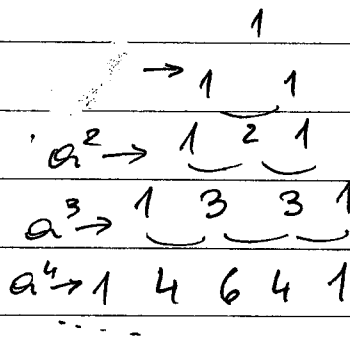 1
→ 1 1
a² → 1 2 1
a³ → 1 3 3 1
a⁴ → 1 4 6 4 1
.....